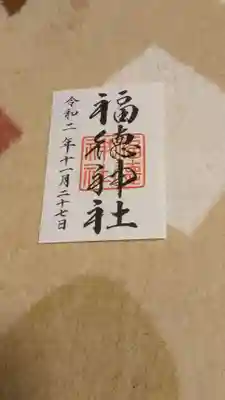 福徳神社
令和二年十一月二十七日